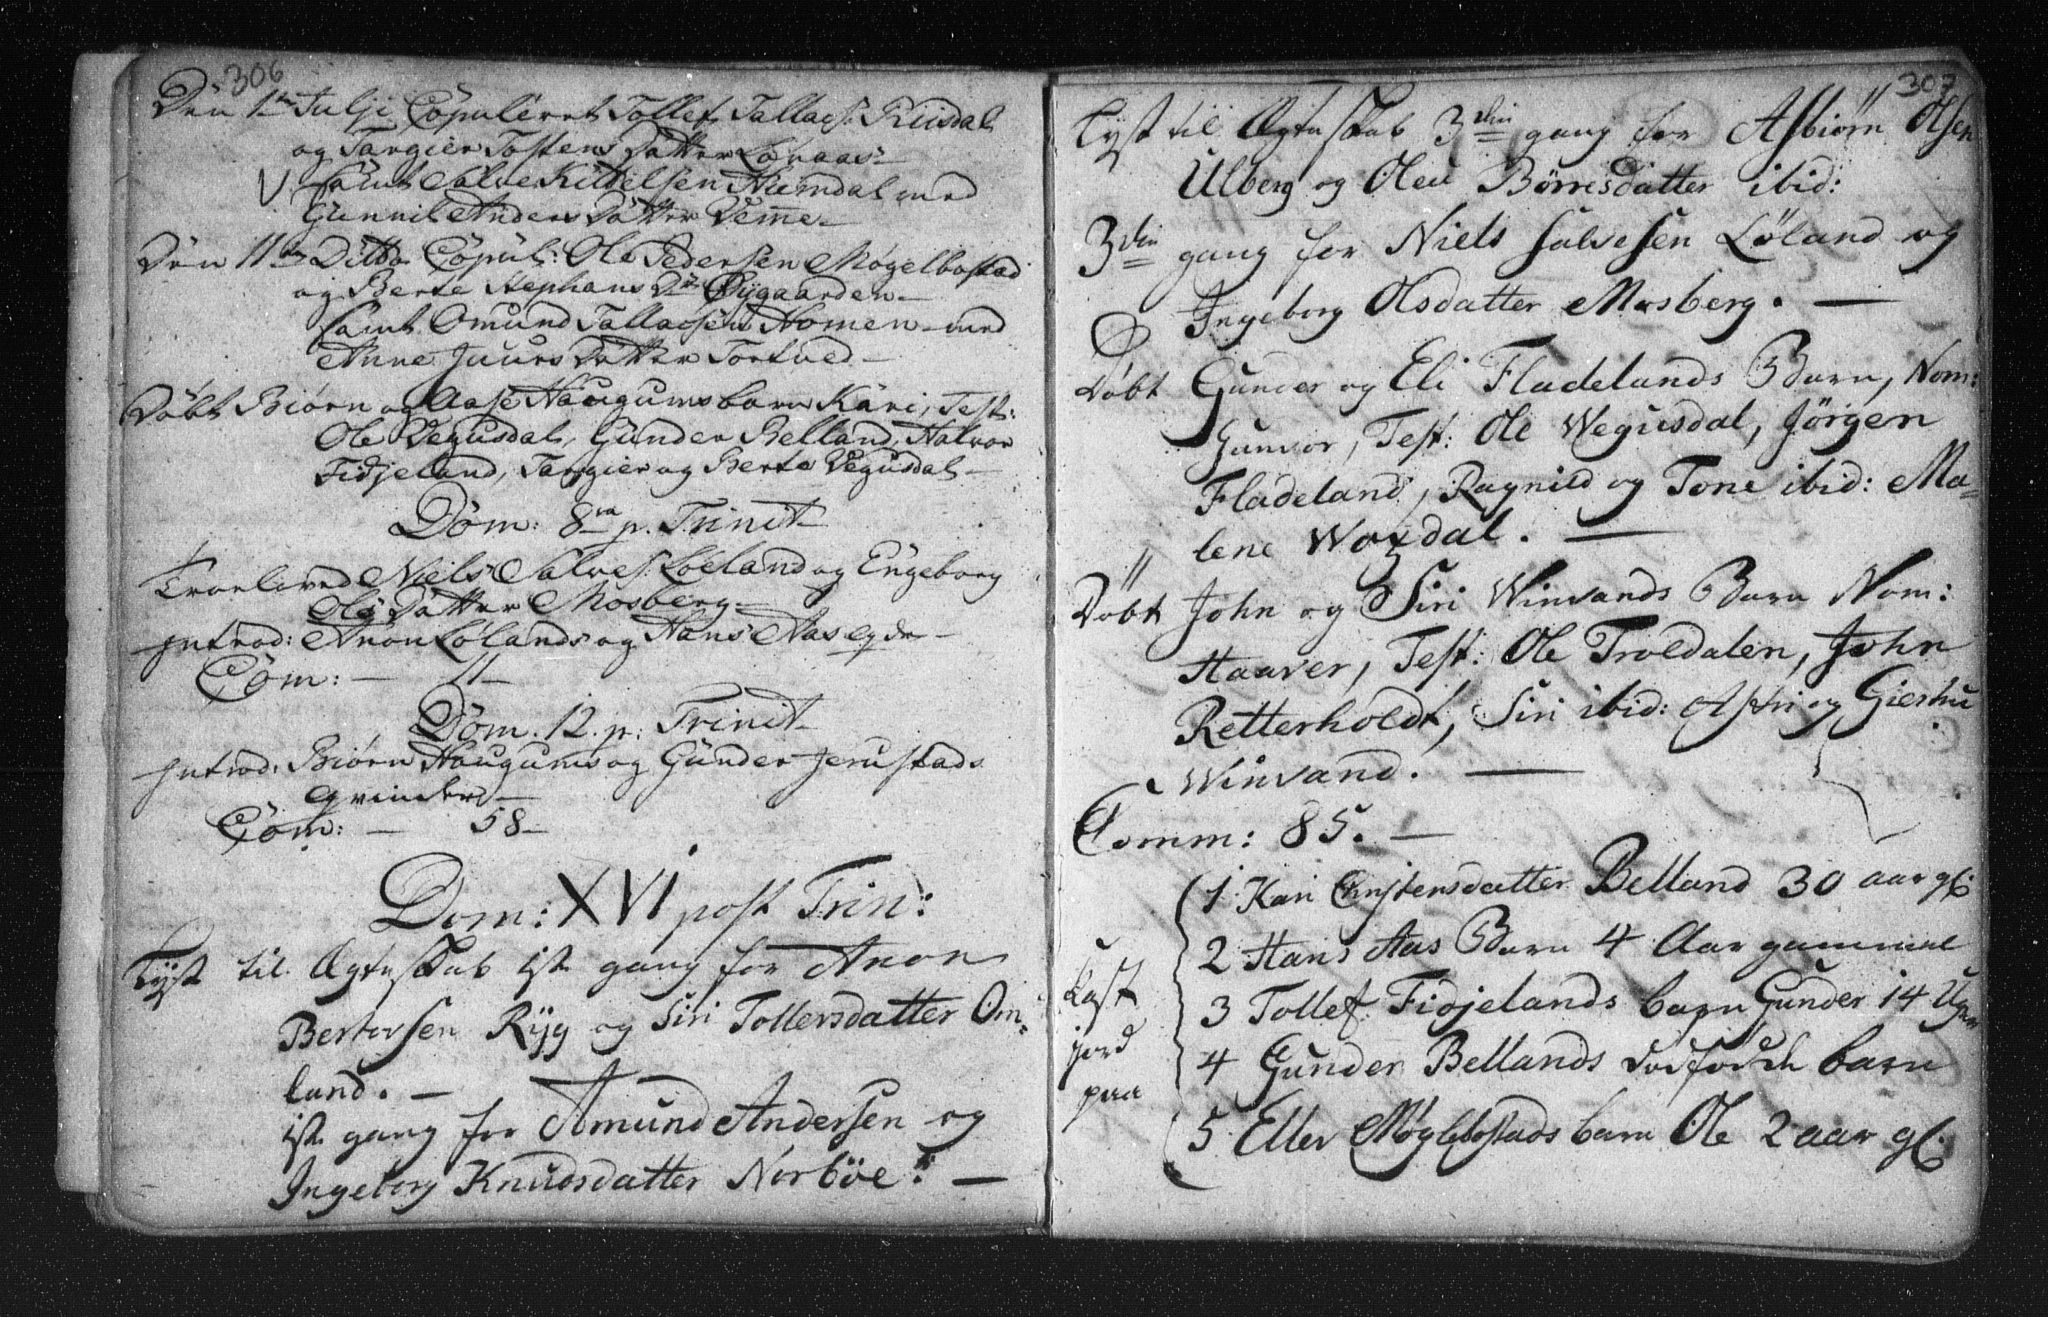 306
Den 1ten Julji Copuleret Tollef Tallacs: Riisdal
og Targier Tostens Datter Lonaas
Samt Salve Kittelsen Hiemdal med
Gunnil Anders Datter Vemme
Den 11te Ditto Copul: Ole Pedersen Møgelbostad
og Berte Stephans Dtr Nygaarden
Samt Omund Tallacsen Homen med
Anne Juurs Datter Tortved
Døbt Biørn og Aase Haugums barn Kari, Test:
Ole Vegusdal, Gunder Belland, Halvor
Fidjeland, Targier og Berte Vegusdal
Dom: 8va p. Trinit
Trovloved Niels Salves: Løeland og Engeborg
Ols Datter Mosberg
Introd: Anon Lølands og Hans Aas qvder
Com: 11
Dom. 12. p: Trinit
Introd: Biørn Haugums og Gunder Jerustads
qvinder
Com: 58
Dom: XVI post Trin:
Lyst til Ægteskab 1ste gang for Anon
Bertorsen Ryg og Siri Tollersdatter Om-
land.
1ste gang for Amund Andersen og
Ingeborg Knudsdatter Norbøe.
307
Lyst til Ægteskab 3die gang for Asbiørn Olsen
Ulberg og Oleu Børresdatter ibid:
3die gang for Niels Salvesen Løland og
Ingeborg Olsdatter Mosberg.
Døbt Gunder og Eli Fladelands Barn, Nom:
Gunvor, Test: Ole Wegusdal, Jørgen
Fladeland, Ragnild og Tone ibid: Ma-
lene Woxdal.
Døbt John og Siri Winvands Barn Nom:
Haaver, Test: Ole Troedalen, John
Retterholdt, Siri ibid: Astri og Giertru
Winvand.
Comm: 85.
1 Kari Christensdatter Belland 30 aar gl.
2 Hans Aas Barn 4 Aar gammel
Kast 3 Tollef Fidjelands barn Gunder 14 Uger
jord 4 Gunder Bellands dødfødde barn
paa 5 Eller Møglebostads barn Ole 2 aar gl.